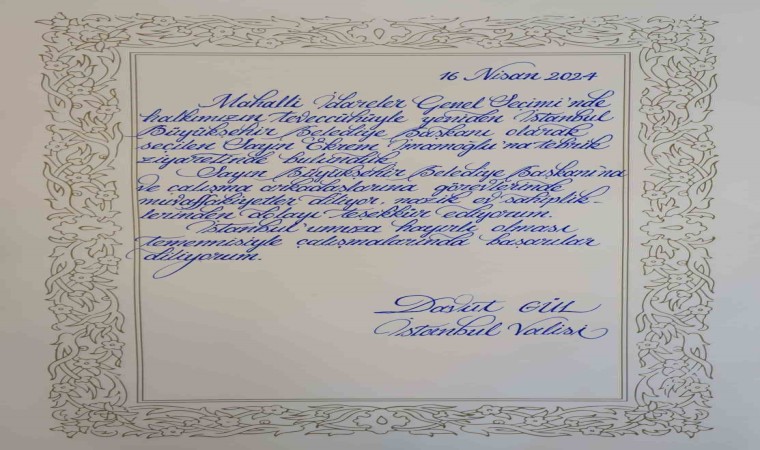 16 Nisan 2024
Mahalli İdareler Genel Seçimi'nde
halkımızın teveccühüyle yeniden İstanbul
Büyükşehir Belediye Başkanı olarak
seçilen Sayın Ekrem İmamoğlu'na tebrik
ziyaretinde bulunduk.
Sayın Büyükşehir Belediye Başkanı'na
ve çalışma arkadaşlarına görevlerinde
muvaffakiyetler diliyor, nazik ev sahiplik-
lerinden dolayı teşekkür ediyorum.
İstanbul'umuza hayırlı olması
temennisiyle çalışmalarında başarılar
diliyorum.
Davut GÜL
İstanbul Valisi